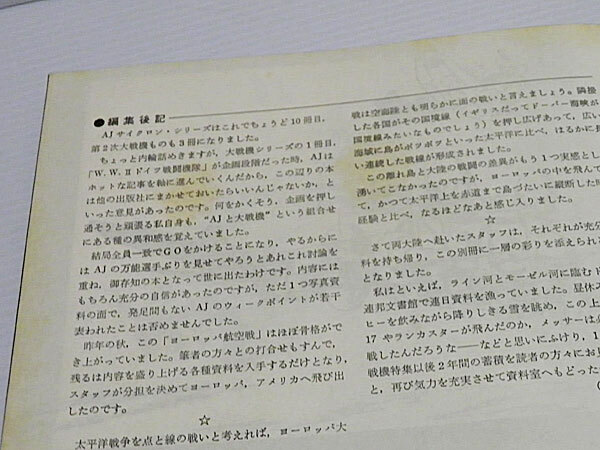 ●編集後記
AJサイクロン・シリーズはこれでちょうど10冊目,
第2次大戦機ものも3冊になりました。
ちょっと内輪話めきますが, 大戦機シリーズの1冊目,
「W.W.Ⅱドイツ戦闘機隊」が企画段階だった時, AJは
ホットな記事を軸に進んでいくんだから, この辺りの本
は他の出版社にまかせておいたらいいんじゃないか, と
いった意見があったのです。何をかくそう, 企画を押し
通そうと頑張る私自身も, “AJと大戦機”という組合せ
にある種の異和感を覚えていました。
結局全員一致でGOをかけることになり, やるからに
はAJの万能選手ぶりを見せてやろうとあれこれ討論を
重ね, 御存知の本となって世に出たわけです。内容には
もちろん充分の自信があったのですが, ただ1つ写真資
料の面で, 発足間もないAJのウィークポイントが若干
表われたことは否めませんでした。
昨年の秋, この「ヨーロッパ航空戦」はほぼ骨格がで
き上がっていました。筆者の方々との打合せもすんで,
残るは内容を盛り上げる各種資料を入手するだけとなり,
スタッフが分担を決めてヨーロッパ, アメリカへ飛び出
したのです。
☆
太平洋戦争を点と線の戦いと考えれば, ヨーロッパ大
戦は空海陸とも明らかに面の戦いと言えましょう。隣接
した各国がその国境線（イギリスだってドーバー海峡が
国境線みたいなものでしょう）を押し広げあって, 広い
海域に島がポツポツといった太平洋に比べ, はるかに長
い連続した戦線が形成されました。
この離れ島と大陸の戦闘の差異がもう1つ実感とし
湧いてこなかったのですが, ヨーロッパの中を飛んで
て, かつて太平洋上を赤道まで島づたいに縦断した時
経験と比べ, なるほどなあと感じ入りました。
☆
さて両大陸へ赴いたスタッフは, それぞれが充分
料を持ち帰り, この別冊に一層の彩りを添えられ
となりました。
私はといえば, ライン河とモーゼル河に臨む
連邦文書館で連日資料を漁っていました。昼休
ヒーを飲みながら降りしきる雪を眺め, この上
17やランカスターが飛んだのか, メッサーは
戦したんだろうな――などと思いにふけり, 1
戦機特集以後2年間の蓄積を読者の方々にお
と, 再び気力を充実させて資料室へもどった